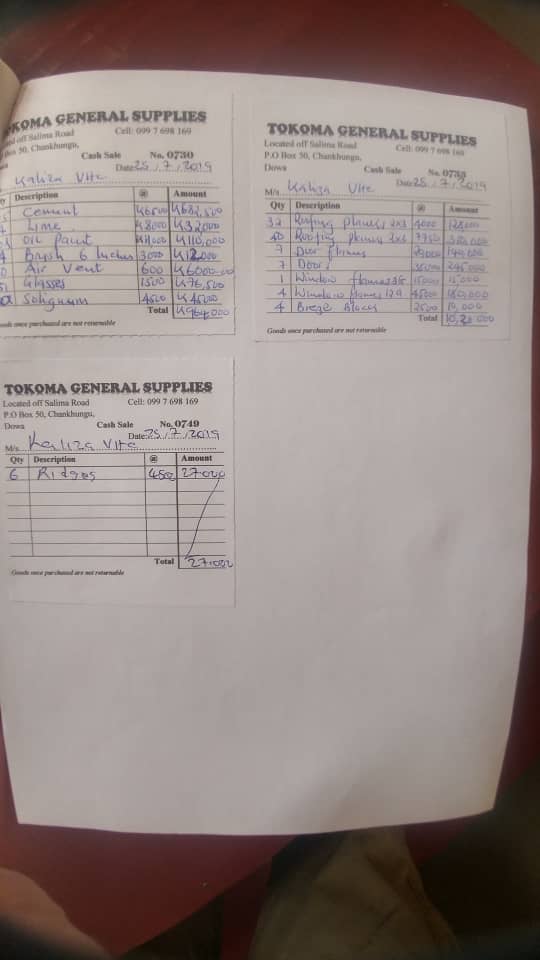 TOKOMA GENERAL SUPPLIES
Located off Salima Road Cell: 099 7 698 169
Box 50, Chankhungu,
Cash Sale No. 0730
Date 25/7/2019
Kaliza VHC
Description @ Amount
Cement K6500 K682,500
Lime K8000 K32,000
Oil Paint K110,000
Brush 6 Inches 3000 K12,000
Air Vent 600 K6000.00
Glasses 1500 K76,500
Solignum 4500 K45000
Total K964,000
Goods once purchased are not returnable
TOKOMA GENERAL SUPPLIES
Located off Salima Road Cell: 099 7 698 169
P.O Box 50, Chankhungu,
Dowa Cash Sale No.
Date 25/7/2019
M/s Kaliza VHC
Qty Description @ Amount
32 Roofing planks 2x3 4000 128,000
Roofing planks 7750
7 Door flames
7 Door 35000 245,000
1 Window flames 15000 15,000
4 Window flames
4 Breze Blocks 2500
Total
Goods once purchased are not returnable
TOKOMA GENERAL SUPPLIES
Located off Salima Road Cell: 099 7 698 169
P.O Box 50, Chankhungu,
Dowa Cash Sale No. 0749
Date: 25/7/2019
M/s Kaliza VHC
Qty Description @ Amount
6 Ridges 4500 27000
Total 27,000
Goods once purchased are not returnable